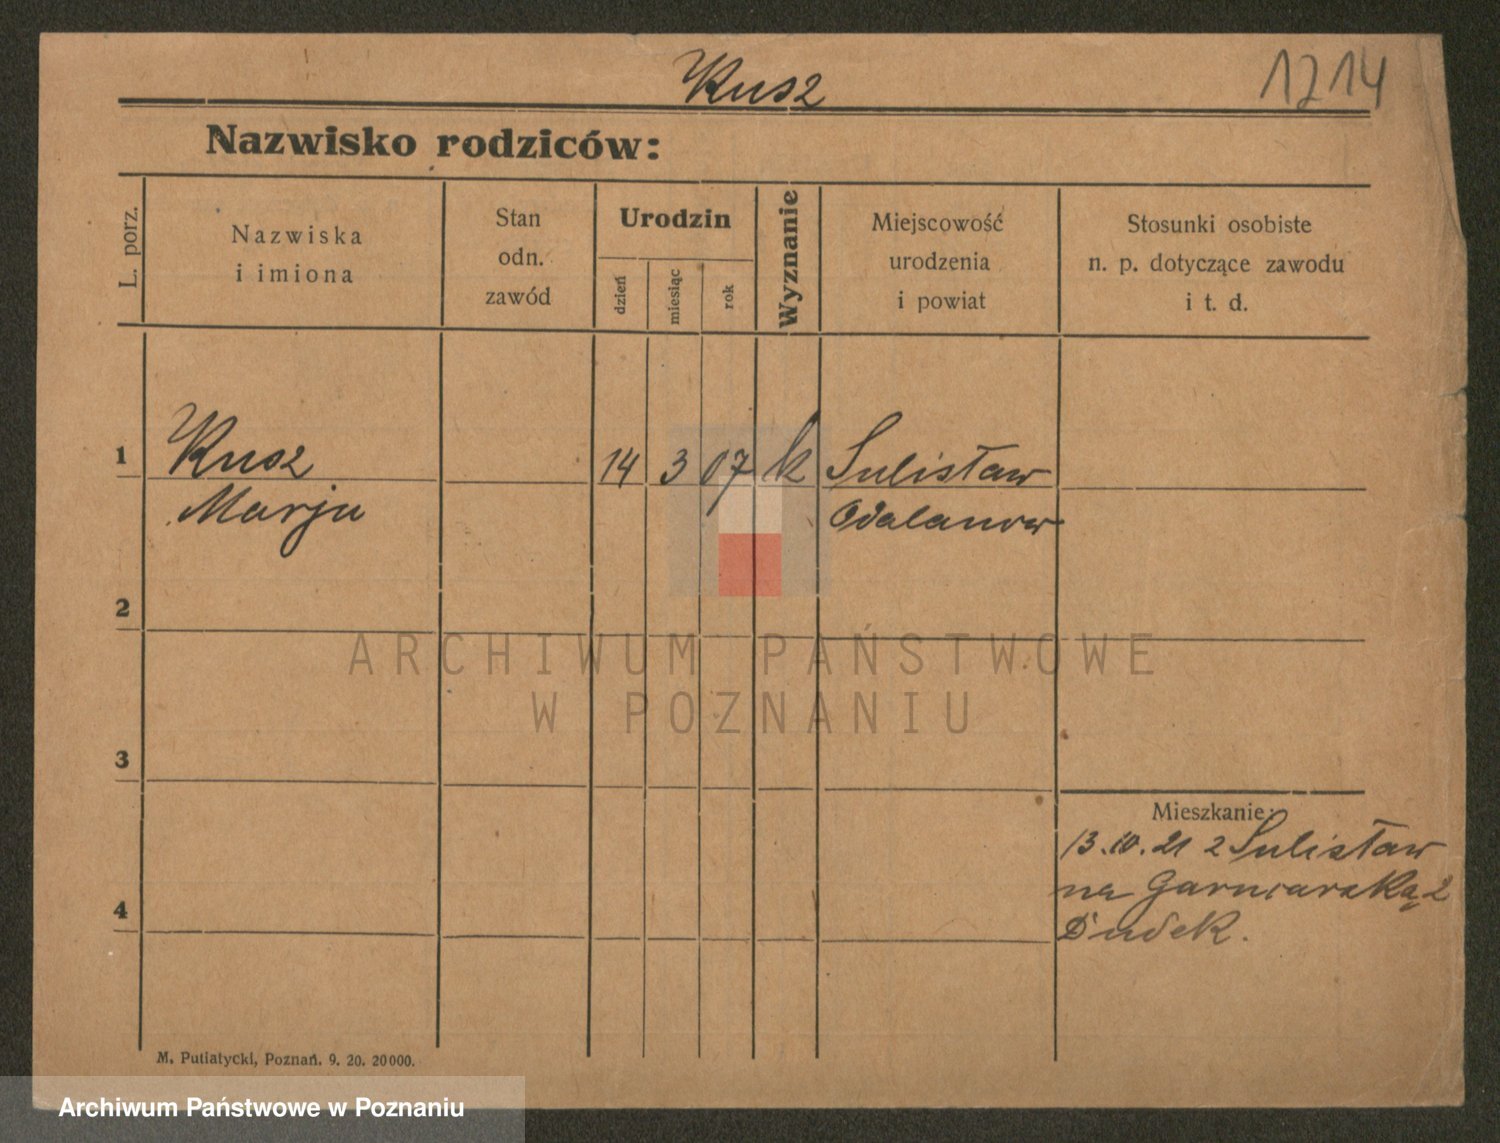 Kusz
1214
Nazwisko rodziców:
L. porz.
Nazwiska
i imiona
Stan
odn.
zawód
Urodzin
dzień
miesiąc
rok
Wyznanie
Miejscowość
urodzenia
i powiat
Stosunki osobiste
n. p. dotyczące zawodu
i t. d.
1
Kusz
14
3
07
k
Sulisław
Marja
Odalanow
2
ARCHIWUM PAŃSTWOWE
W POZNANIU
3
Mieszkanie:
13.10.21 z Sulisław
na Garncarską 2
4
Dudek.
M. Putiatycki, Poznań. 9. 20. 20000.
Archiwum Państwowe w Poznaniu